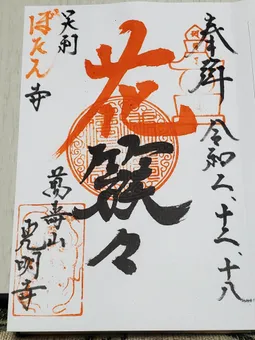 奉拝
令和二、十二、十八
花
簇々
足利
ぼたん寺
萬壽山
光明寺